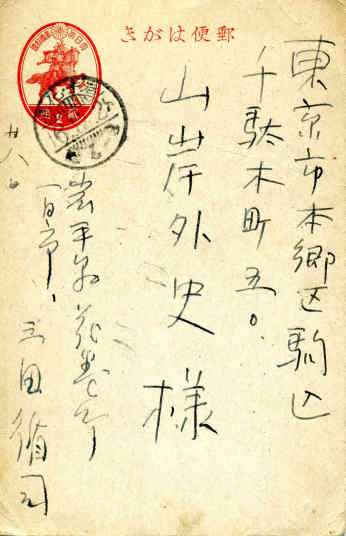 郵便はがき
東京市本郷区駒込
千駄木町五〇
山岸外史様
岩手県花巻町
廿八日